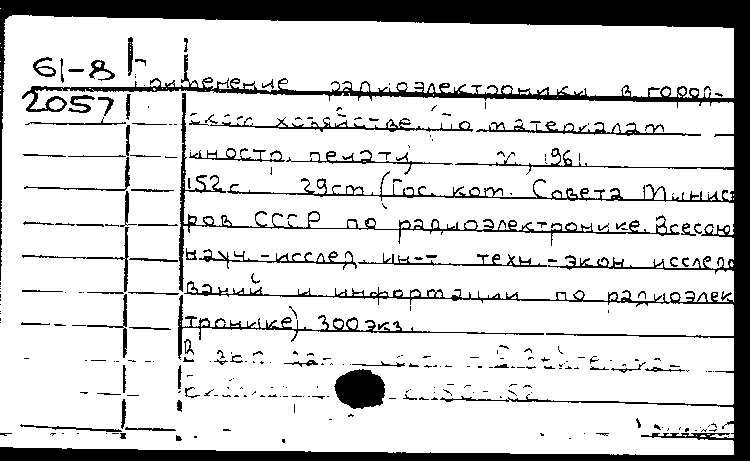 61-8
2057
Применение радиоэлектроники в город-
ском хозяйстве. По материалам
иностр. печати, м, 1961.
152 с. 29 см. (Гос. ком. Совета Минис
ров СССР по радиоэлектронике. Всесою
науч.-исслед. ин-т техн.-экон. исследо
ваний и информации по радиоэлек
тронике). 300 экз.
В
с. 150-152